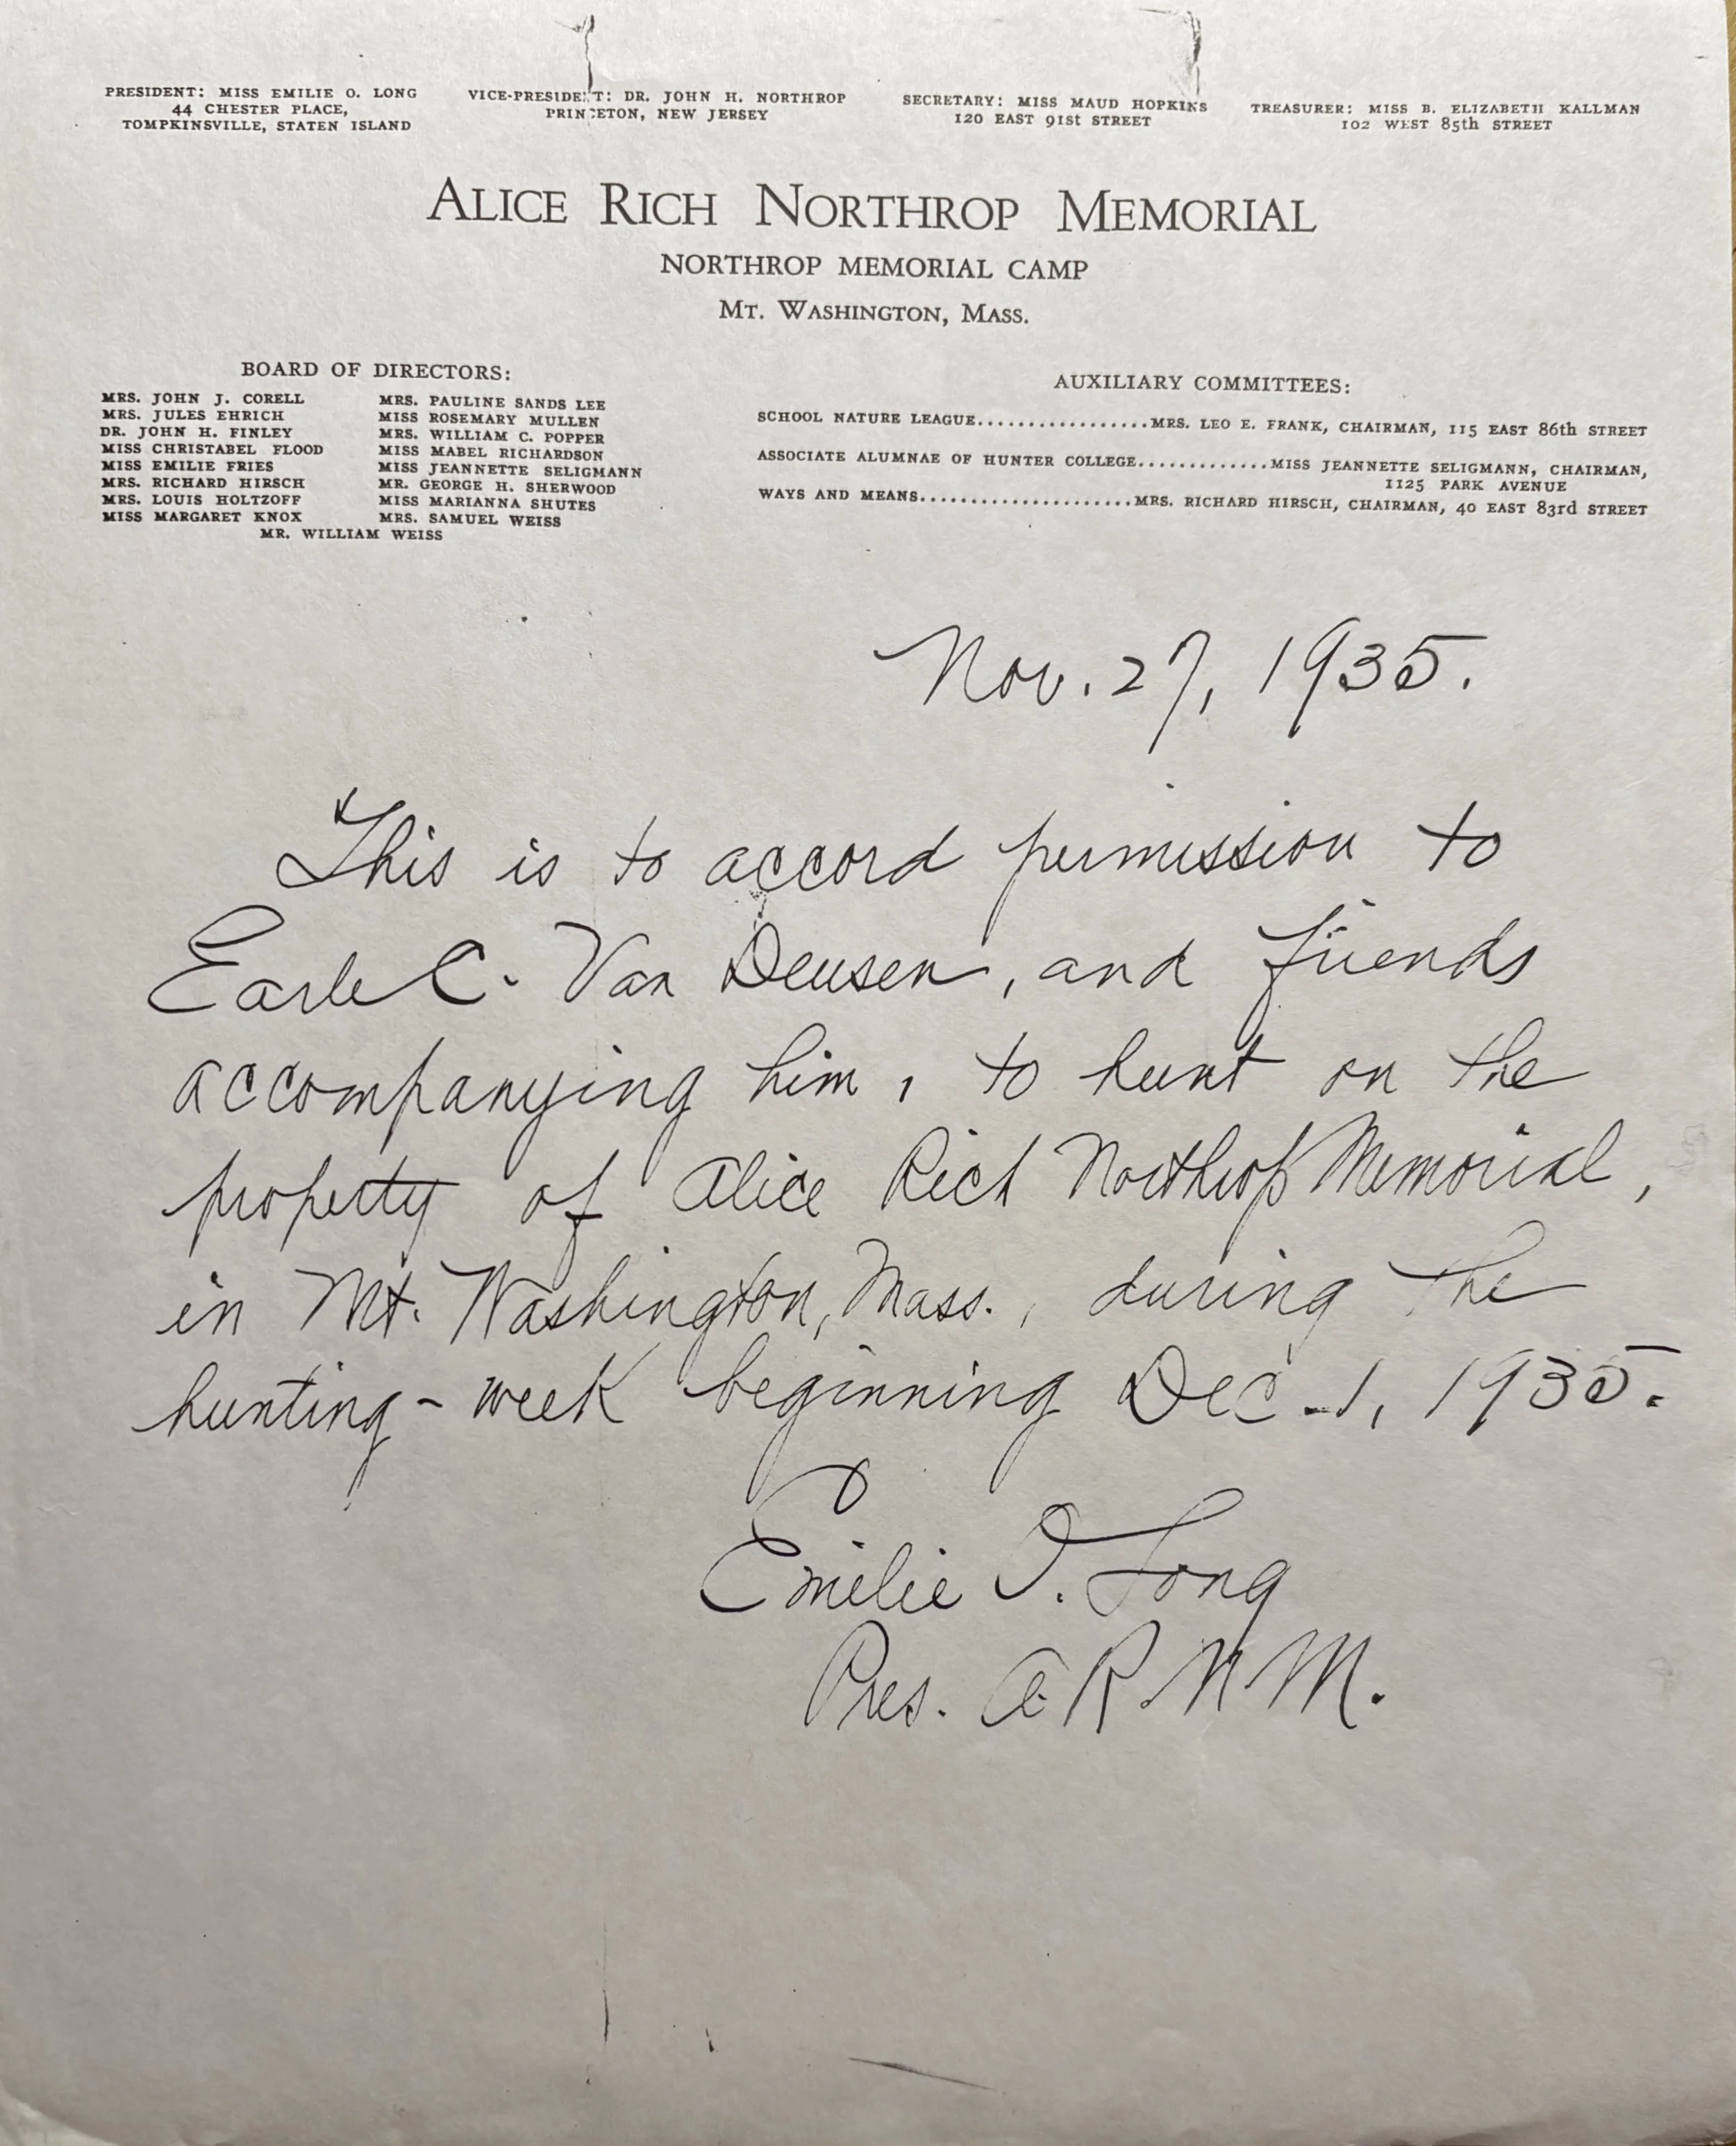 PRESIDENT: MISS EMILIE O. LONG
44 CHESTER PLACE,
TOMPKINSVILLE, STATEN ISLAND
VICE-PRESIDENT: DR. JOHN H. NORTHROP
PRINCETON, NEW JERSEY
SECRETARY: MISS MAUD HOPKINS
120 EAST 91st STREET
TREASURER: MISS B. ELIZABETH KALLMAN
102 WEST 85th STREET
ALICE RICH NORTHROP MEMORIAL
NORTHROP MEMORIAL CAMP
MT. WASHINGTON, MASS.
BOARD OF DIRECTORS:
MRS. JOHN J. CORELL
MRS. JULES EHRICH
DR. JOHN H. FINLEY
MISS CHRISTABEL FLOOD
MISS EMILIE FRIES
MRS. RICHARD HIRSCH
MRS. LOUIS HOLTZOFF
MISS MARGARET KNOX
MRS. PAULINE SANDS LEE
MISS ROSEMARY MULLEN
MRS. WILLIAM C. POPPER
MISS MABEL RICHARDSON
MISS JEANNETTE SELIGMANN
MR. GEORGE H. SHERWOOD
MISS MARIANNA SHUTES
MRS. SAMUEL WEISS
MR. WILLIAM WEISS
AUXILIARY COMMITTEES:
SCHOOL NATURE LEAGUE.................MRS. LEO E. FRANK, CHAIRMAN, 115 EAST 86th STREET
ASSOCIATE ALUMNAE OF HUNTER COLLEGE.............MISS JEANNETTE SELIGMANN, CHAIRMAN,
1125 PARK AVENUE
WAYS AND MEANS.....................MRS. RICHARD HIRSCH, CHAIRMAN, 40 EAST 83rd STREET
Nov. 27, 1935.
This is to accord permission to
Earle C. Van Deusen, and friends
accompanying him, to hunt on the
property of Alice Rich Northrop Memorial,
in Mt. Washington, Mass., during the
hunting-week beginning Dec. 1, 1935.
Emilie O. Long
Pres. A.R.N.M.